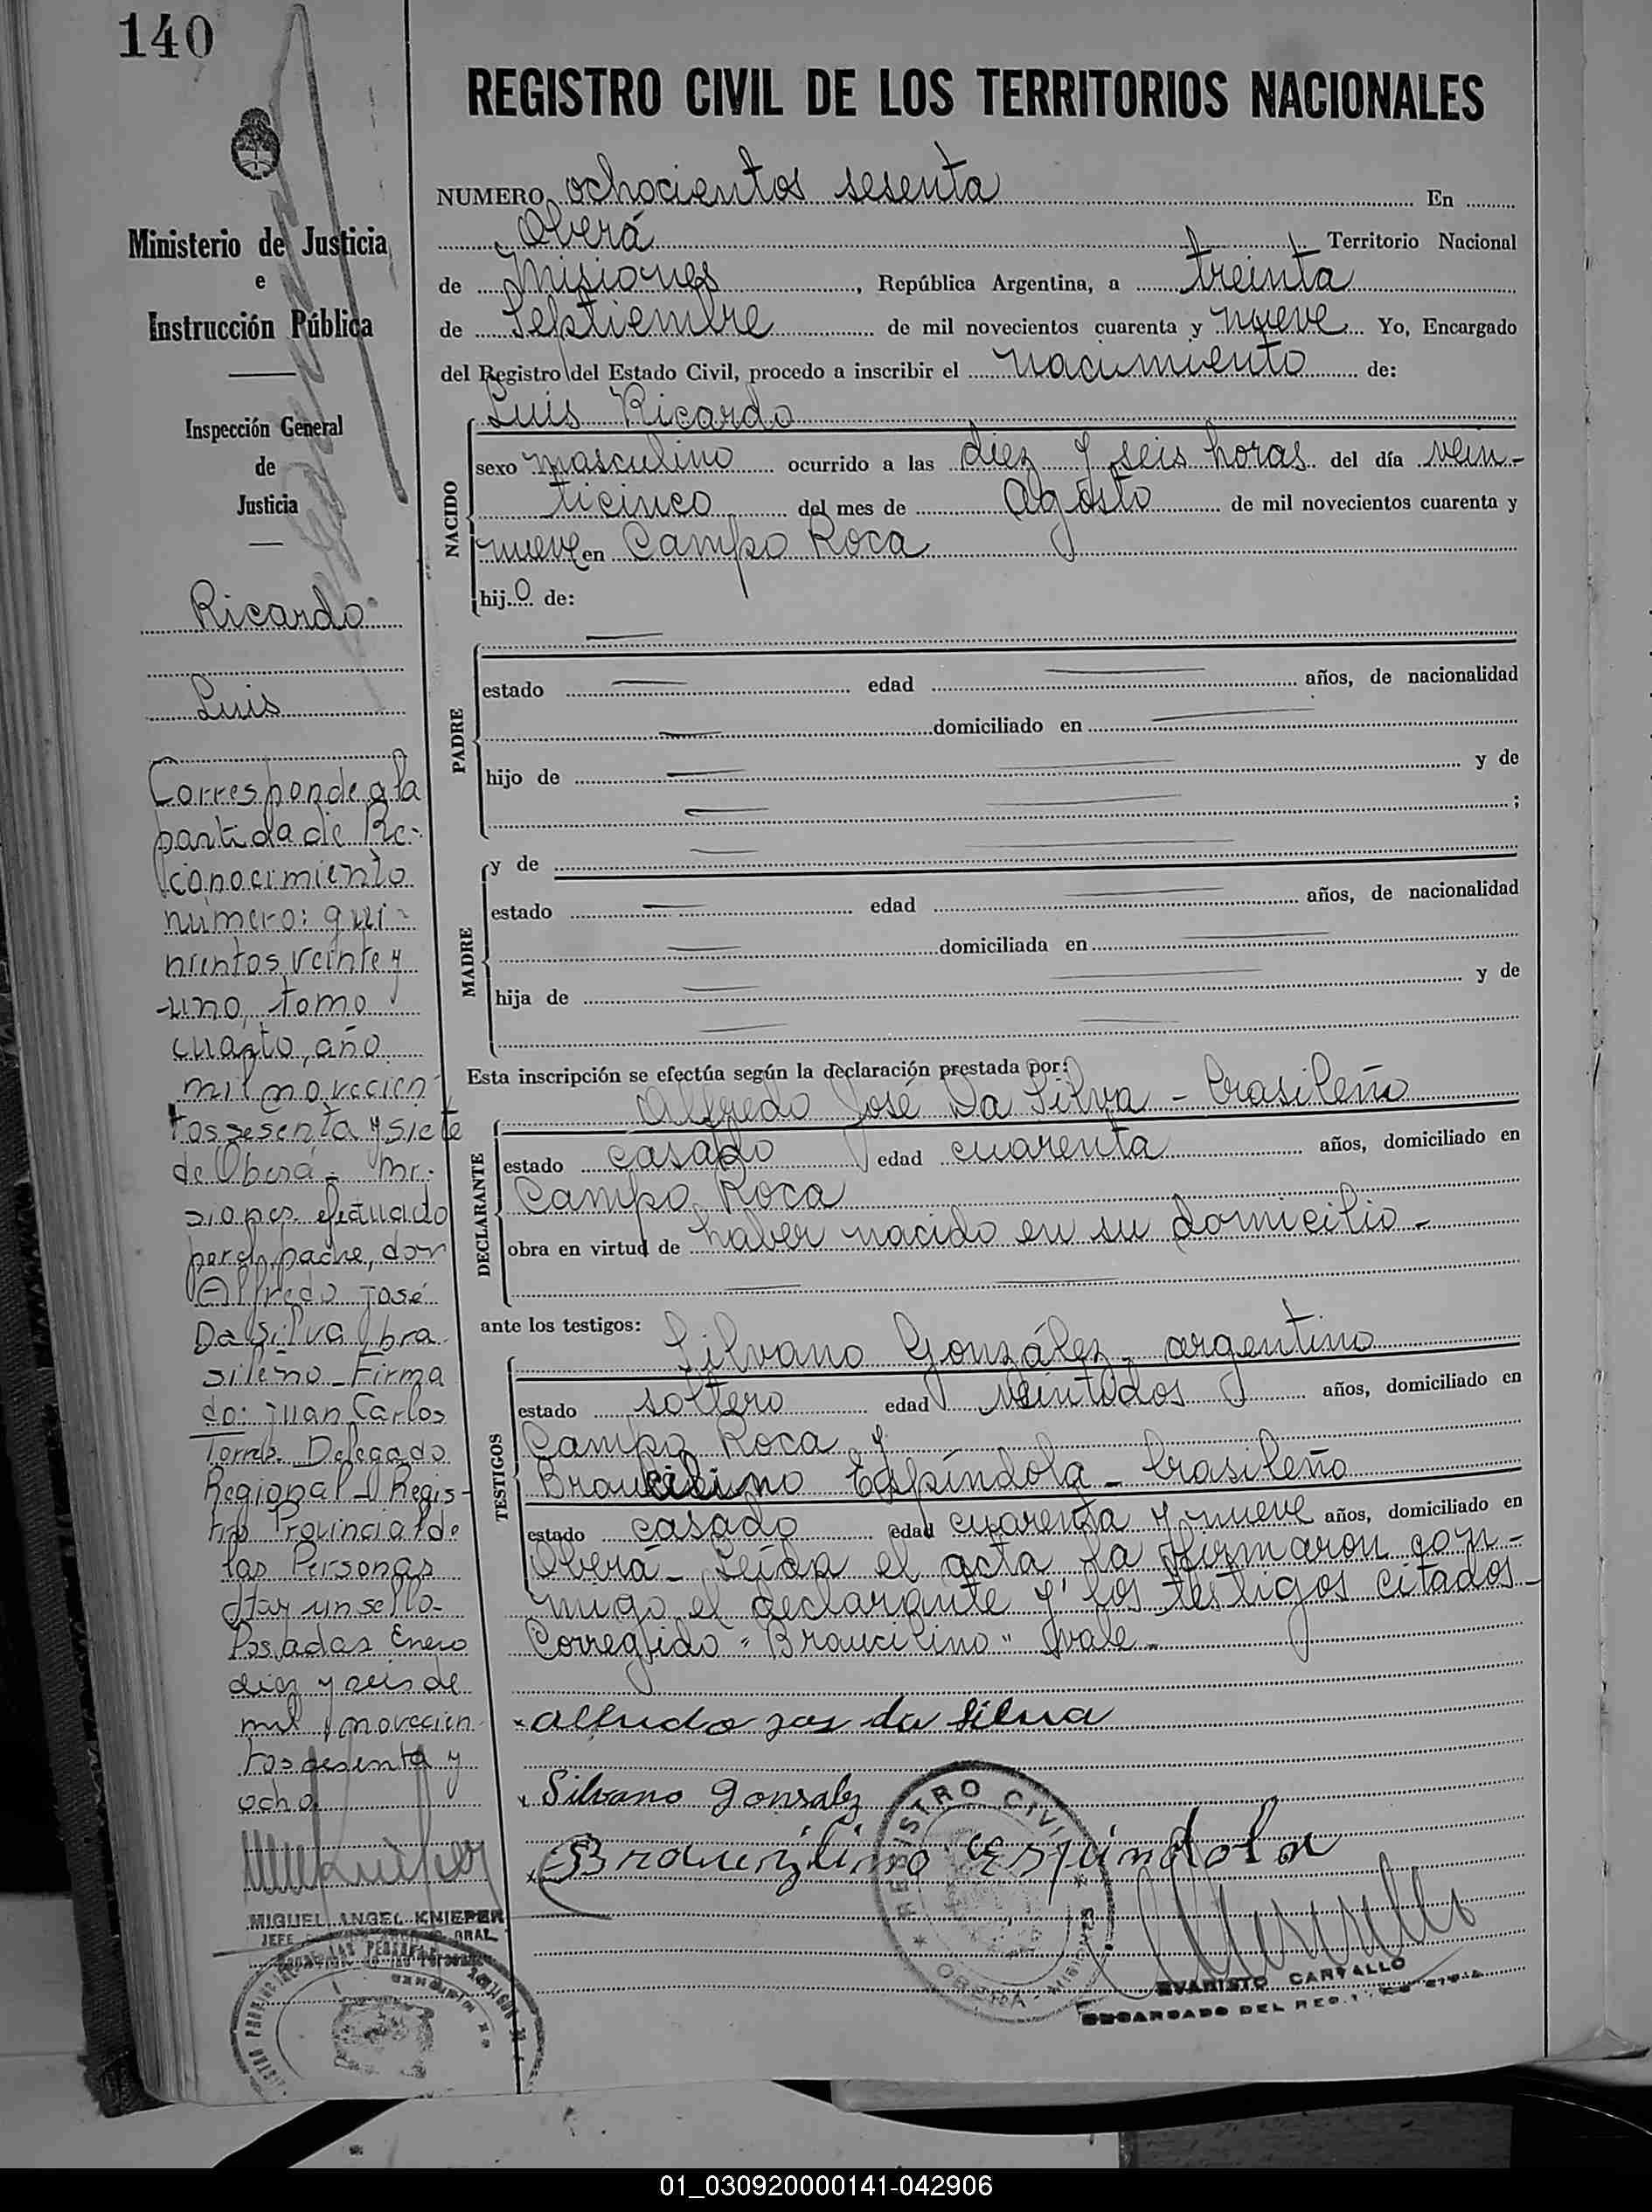 140
REGISTRO CIVIL DE LOS TERRITORIOS NACIONALES
Ministerio de Justicia
e
Instrucción Pública
Inspección General
de
Justicia
Ricardo
Luis
Corresponde a la
partida de Re-
conocimiento
número: qui-
nientos veinte y
uno, tomo
cuarto, año
mil novecien
tos sesenta y siete
de Oberá - Mi-
siones efectuado
por el padre, don
Alfredo José
Da Silva bra
sileño - Firma
do: Juan Carlos
Torres Delegado
Regional - Regis-
tro Provincial de
las Personas
Hay un sello-
Posadas Enero
diez y seis de
mil novecien
tos sesenta y
ocho
MIGUEL ANGEL KNIEPER
JEFE
NUMERO ochocientos sesenta En
Oberá Territorio Nacional
de Misiones, República Argentina, a treinta
de Septiembre de mil novecientos cuarenta y nueve Yo, Encargado
del Registro del Estado Civil, procedo a inscribir el nacimiento de:
NACIDO
Luis Ricardo
sexo masculino ocurrido a las diez y seis horas del día vein-
ticinco del mes de Agosto de mil novecientos cuarenta y
nueve en Campo Roca
hijo de:
PADRE
estado edad años, de nacionalidad
domiciliado en
hijo de y de
;
MADRE
y de
estado edad años, de nacionalidad
domiciliada en
hija de y de
Esta inscripción se efectúa según la declaración prestada por:
DECLARANTE
Alfredo José Da Silva - brasileño
estado casado edad cuarenta años, domiciliado en
Campo Roca
obra en virtud de haber nacido en su domicilio -
ante los testigos:
TESTIGOS
Silvano González - argentino
estado soltero edad veintidos años, domiciliado en
Campo Roca y
Braucilino Espíndola - brasileño
estado casado edad cuarenta y nueve años, domiciliado en
Oberá - Leída el acta la firmaron con-
migo el declarante y los testigos citados -
Corregido "Braucilino" vale -
alfredo jos da silva
Silvano Gonsalez
Brauzilino Espindola
REGISTRO CIVIL
OBERA MISIONES
EVARISTO CARVALLO
ENCARGADO DEL REG. CIVIL
01_030920000141-042906